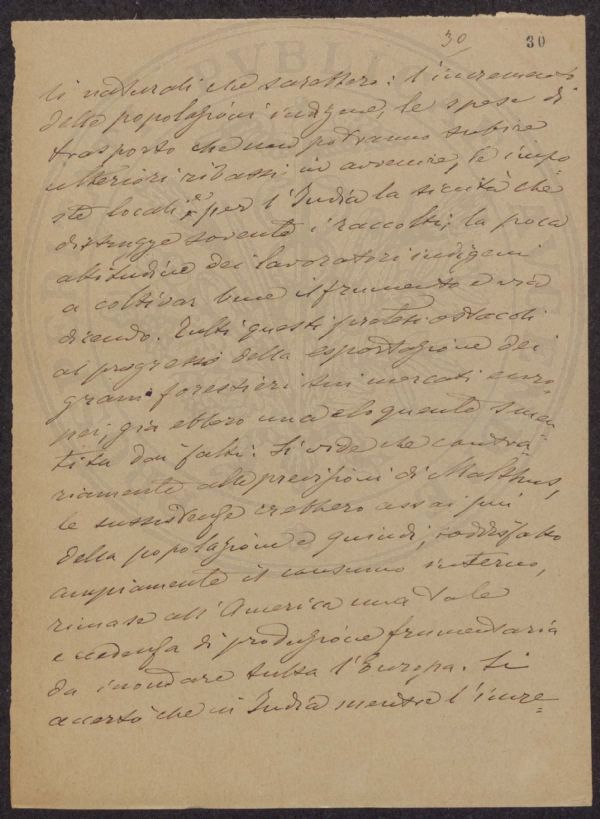 30 30
li naturali che sarebbero: l'incremento
delle popolazioni indigene, le spese di
trasporto che non potranno subire
ulteriori ribassi in avvenire, le impo
ste locali e per l'India la siccità che
distrugge sovente i raccolti, la poca
abitudine dei lavoratori indigeni
a coltivar bene il frumento e via
dicendo. Tutti questi pretesi ostacoli
al progresso della esportazione dei
grani forestieri sui mercati euro-
pei, già ebbero una eloquente smen
tita dai fatti: si vide che contra-
riamente alle previsioni di Malthus,
le sussistenze crebbero assai più
della popolazione e quindi, soddisfatto
ampiamente il consumo interno,
rimase all'America una tale
eccedenza di produzione frumentaria
da inondare tutta l'Europa. Si
accertò che in India mentre l'incre=
PVBLIC